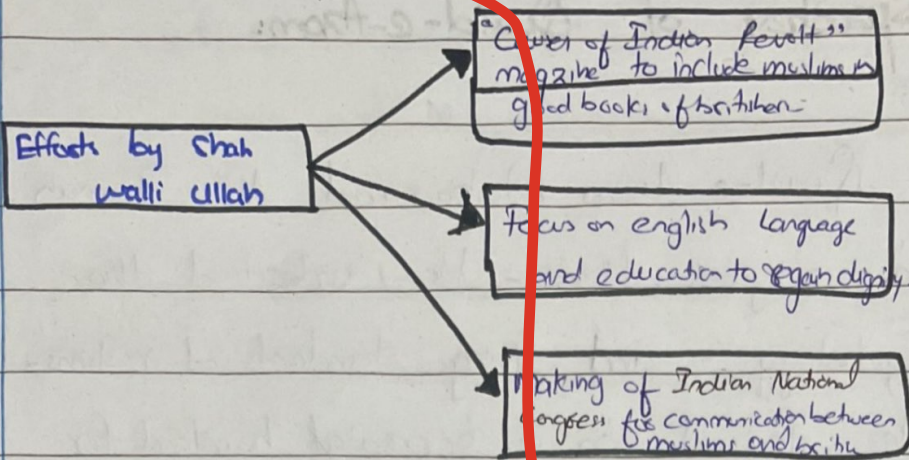 Efforts by Shah
walli Ullah
"Causes of Indian Revolt"
magzine to include muslims in
good books of britishen
Focus on english Language
and education to regain dignity
Making of Indian National
Congress for communication between
muslims and